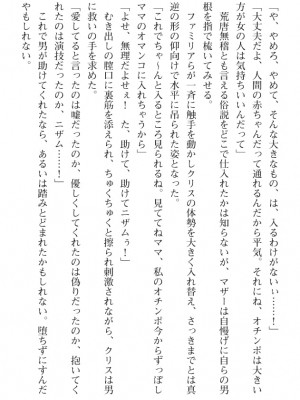 「や、やめろ、やめて、そんな大きなもの、は、入るわけがないぃ……！」
「大丈夫だよ、人間の赤ちゃんだって通れるんだから平気。それにね、オチンポは大きい
方が女の人は気持ちいいんだって」
荒唐無稽とも言える俗説をどこで仕入れたかは知らないが、マザーは自慢げに自らの男
根を指で梳いてみせる。
ファミリアらが一斉に触手を動かしクリスの体勢を大きく入れ替え、さっきまでとは真
逆の形の仰向けで水平に吊られた姿となった。
「これでちゃーんと入るところ見られるね。見ててねママ、私のオチンポ今からずっぽし
ママのオマンコに入れちゃうから」
「よせ、無理だよせぇ！　た、助けて、助けてニザムぅ！」
むき出しの膣口に裏筋を添えられ、ちゅくちゅくと擦られ刺激されながら、クリスは男
に救いの手を求めた。
「愛してると言ったのは嘘だったのか、優しくしてくれたのは偽りだったのか、抱いてく
れたのは演技だったのか、ニザム……！」
これで男が助けてくれたなら、あるいは踏みとどまれたかもしれない。堕ちずにすんだ
やもしれない。